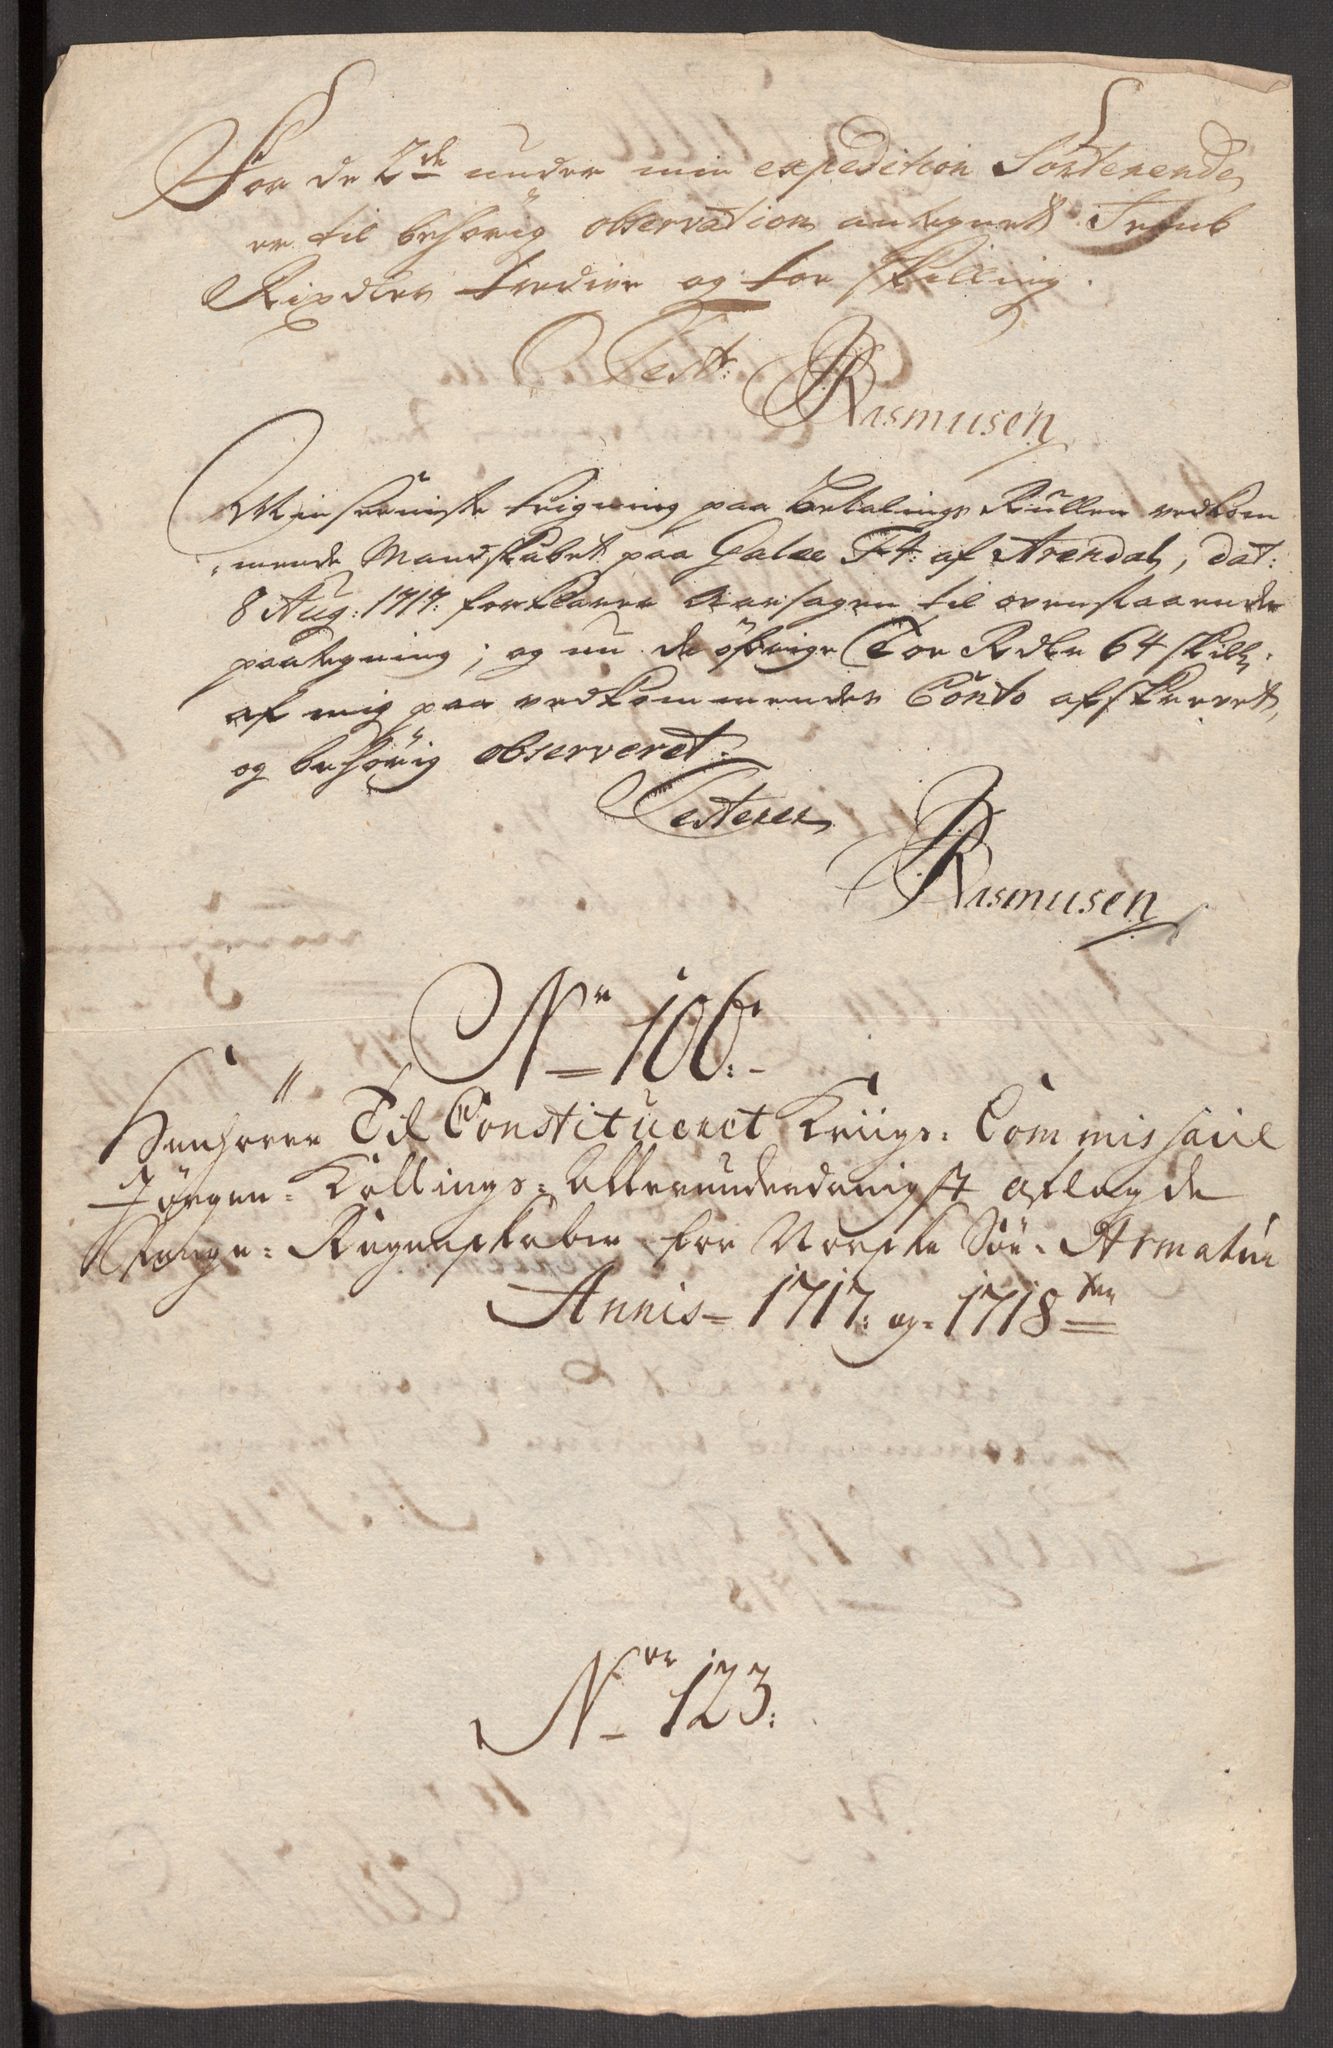 For de 2de under min expedition Sorterende,
er til behörig observation antegnet
Rixdler tredive og toe skilling.
Test:
Rasmusen
Min seeniste teigning paa betalings Rullen vedkom
mende Mandskabet paa Galee Ft: af Arendal, dat:
8 Aug: 1717: forklarer aarsagen til ovenstaaende
paategning; og nu de öfrige Toe Rdlr 64 skill:
af mig paa vedkommendes Conto afskrevet,
og behörig observeret.
Testerer
Rasmusen
Nr 106:
Henhörer Til Constitueret Kriigs: Commissaire
Jörgen Kellings Allerunderdanigst aflagde
Penge: Regenskaber for Norske Söe-Armatur
Annis 1717: og 1718ten
Nr 123: